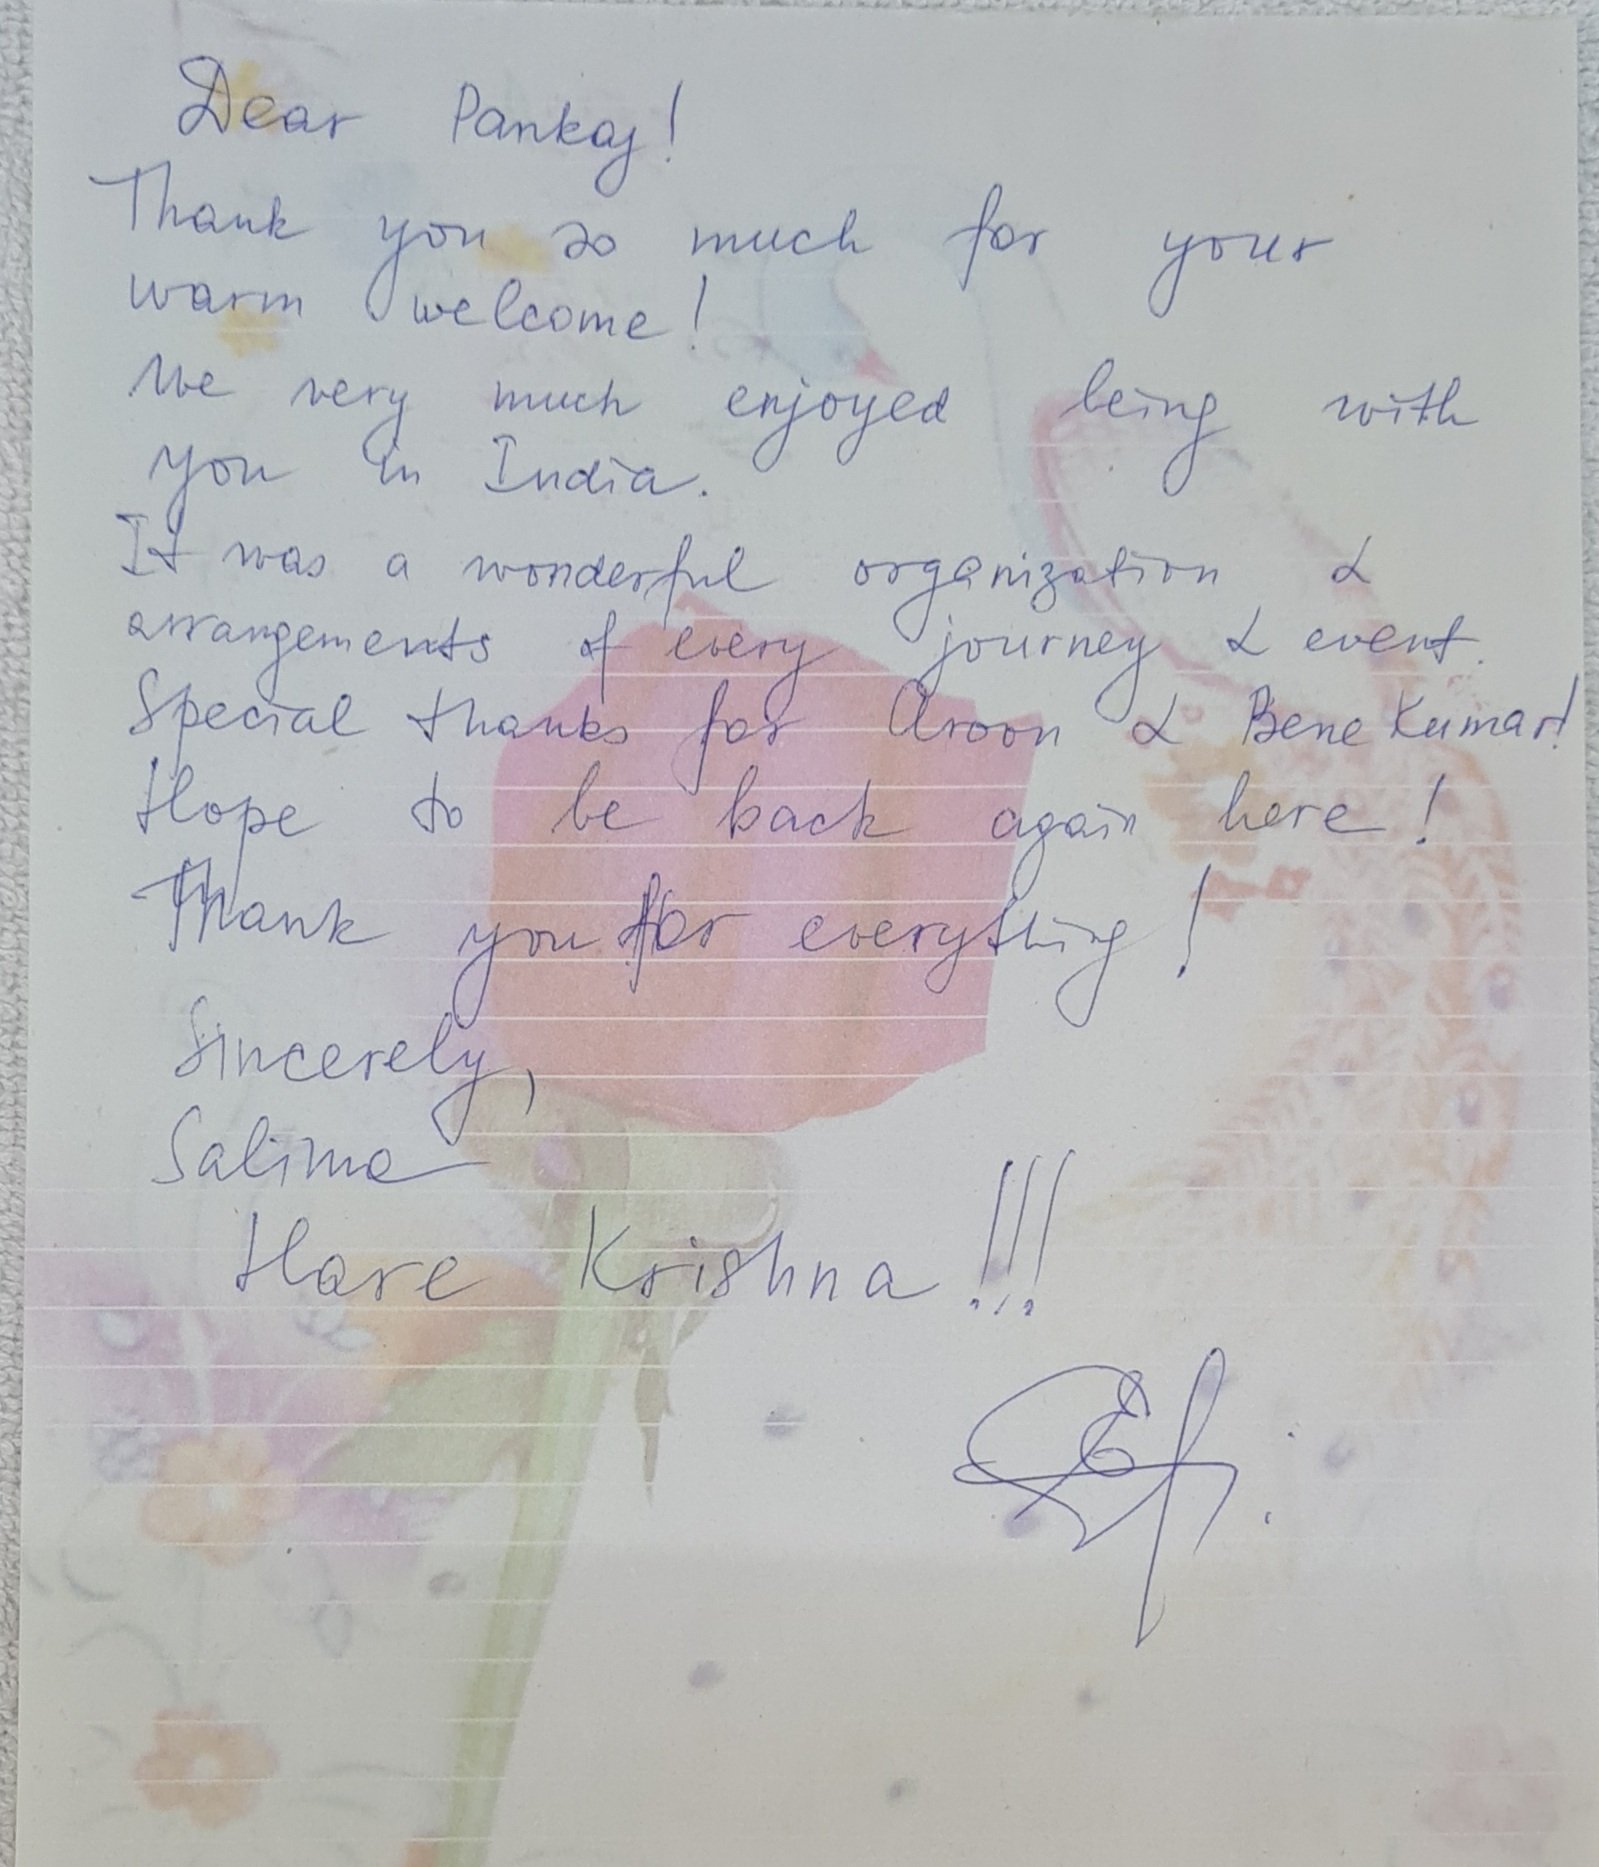 Dear Pankaj!
Thank you so much for your
warm welcome!
We very much enjoyed being with
you in India.
It was a wonderful organization &
arrangements of every journey & event.
Special thanks for Aroon & Bene Kumar!
Hope to be back again here!
Thank you for everything!
Sincerely,
Salima
Hare Krishna!!!